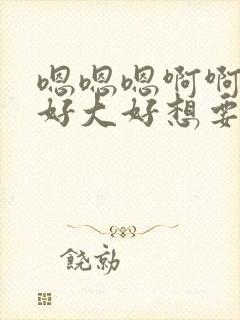 嗯嗯嗯啊啊
好大好想要
饶勍